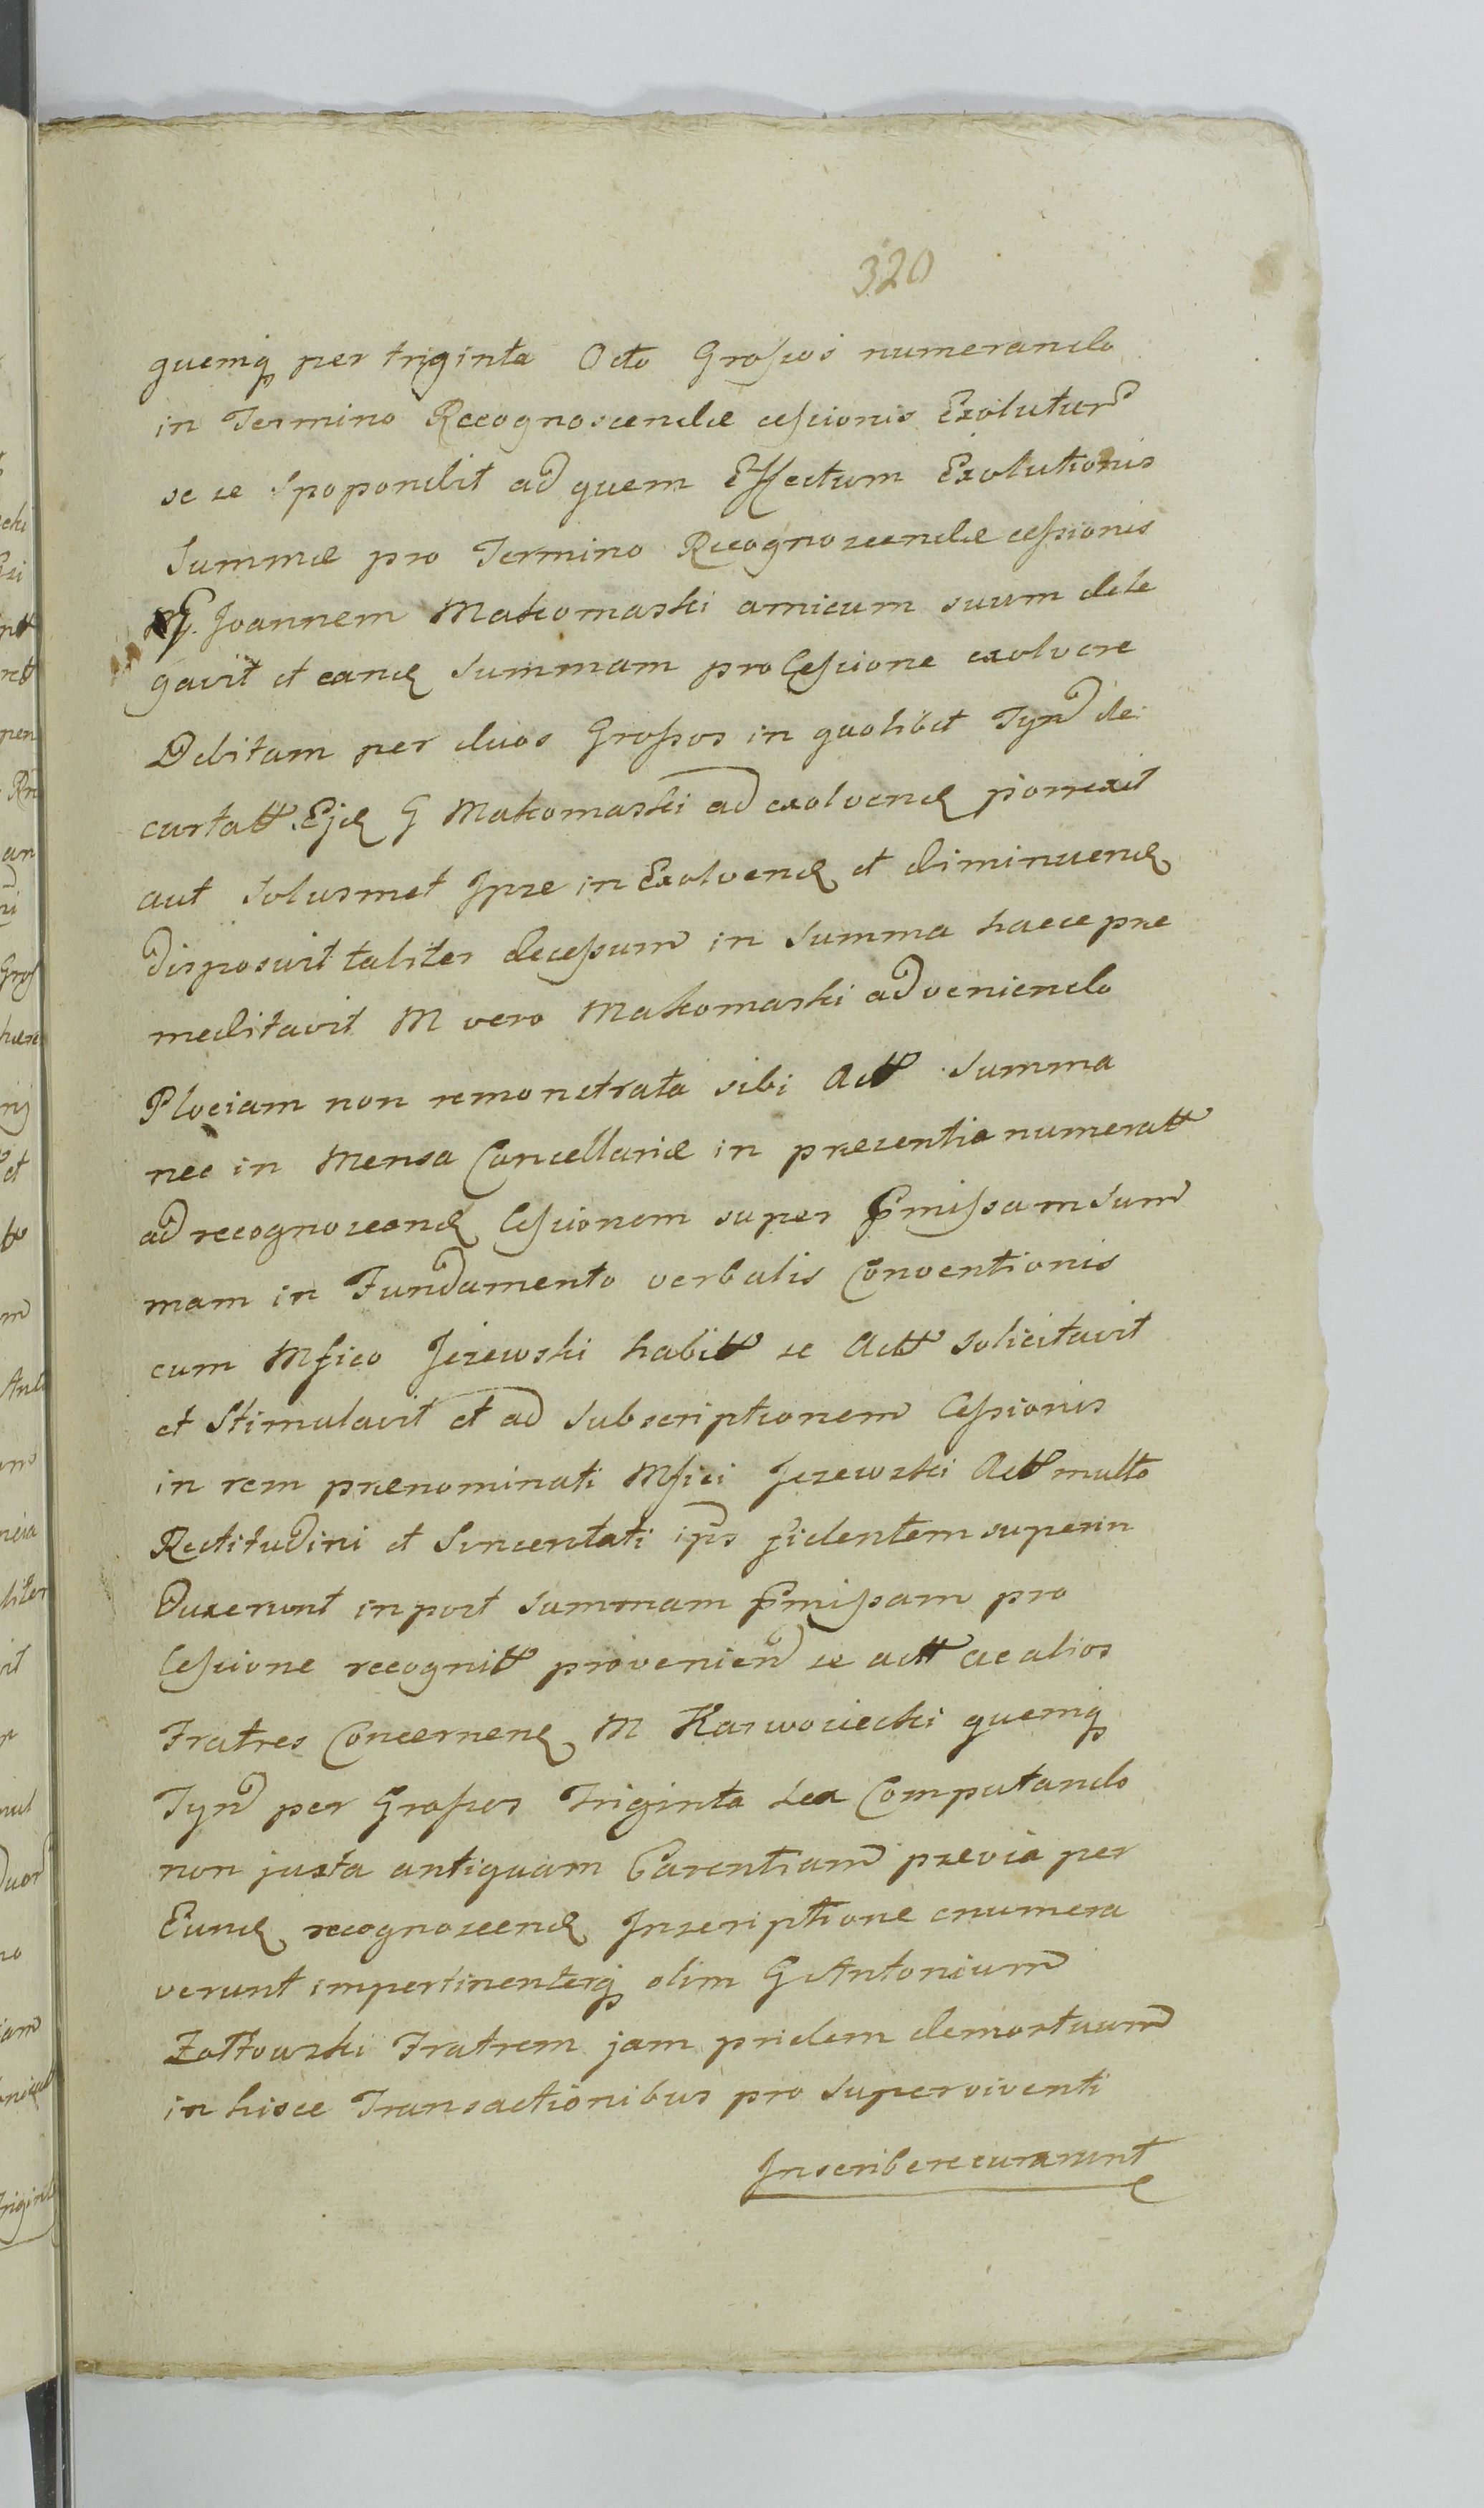 320
quemq per triginta Octo Grossos numerando
in Termino Recognoscendæ cessionis Exolutur
se se spopondit ad quem Effectum Exolutionis
Summæ pro Termino Recognoscendæ cessionis
G. Joannem Makomaski amicum suum dele
gavit et eand summam pro Cessione exolvere
Debitam per duos Grossos in quolibet Tyn de
curtatt Ejd G Makomaski ad exolvend porrexit
aut solusmet Ipse in Exolvend et diminuend
disposuit taliter decessum in summa haece pre
meditavit M vero Makomaski adveniendo
Plociam non remonstrata sibi Actt summa
nec in Mensa Cancellariæ in presentia numeratt
ad recognoscend Cessionem super pmissam sum
mam in Fundamento verbalis Conventionis
cum Mfico Jezewski habitt se Actt solicitavit
et stimulavit et ad subscriptionem Cessionis
in rem prenominati Mfici Jezewski Actt multo
Rectitudini et Sinceritati ips fidentem superin
Duxerunt inpost summam pmissam pro
Cessione recognitt provenien se actt ac alios
Fratres Concernend M Karwosiecki quemq
Tyn per Grossos triginta sex Computando
non juxta antiquam Carentiam previa per
Eund recognoscend Inscriptione enumera
verunt impertinenterq olim G Antonium
Zołtowski Fratrem jam pridem demortuum
in hisce Transactionibus pro superviventi
Inscribere curarunt